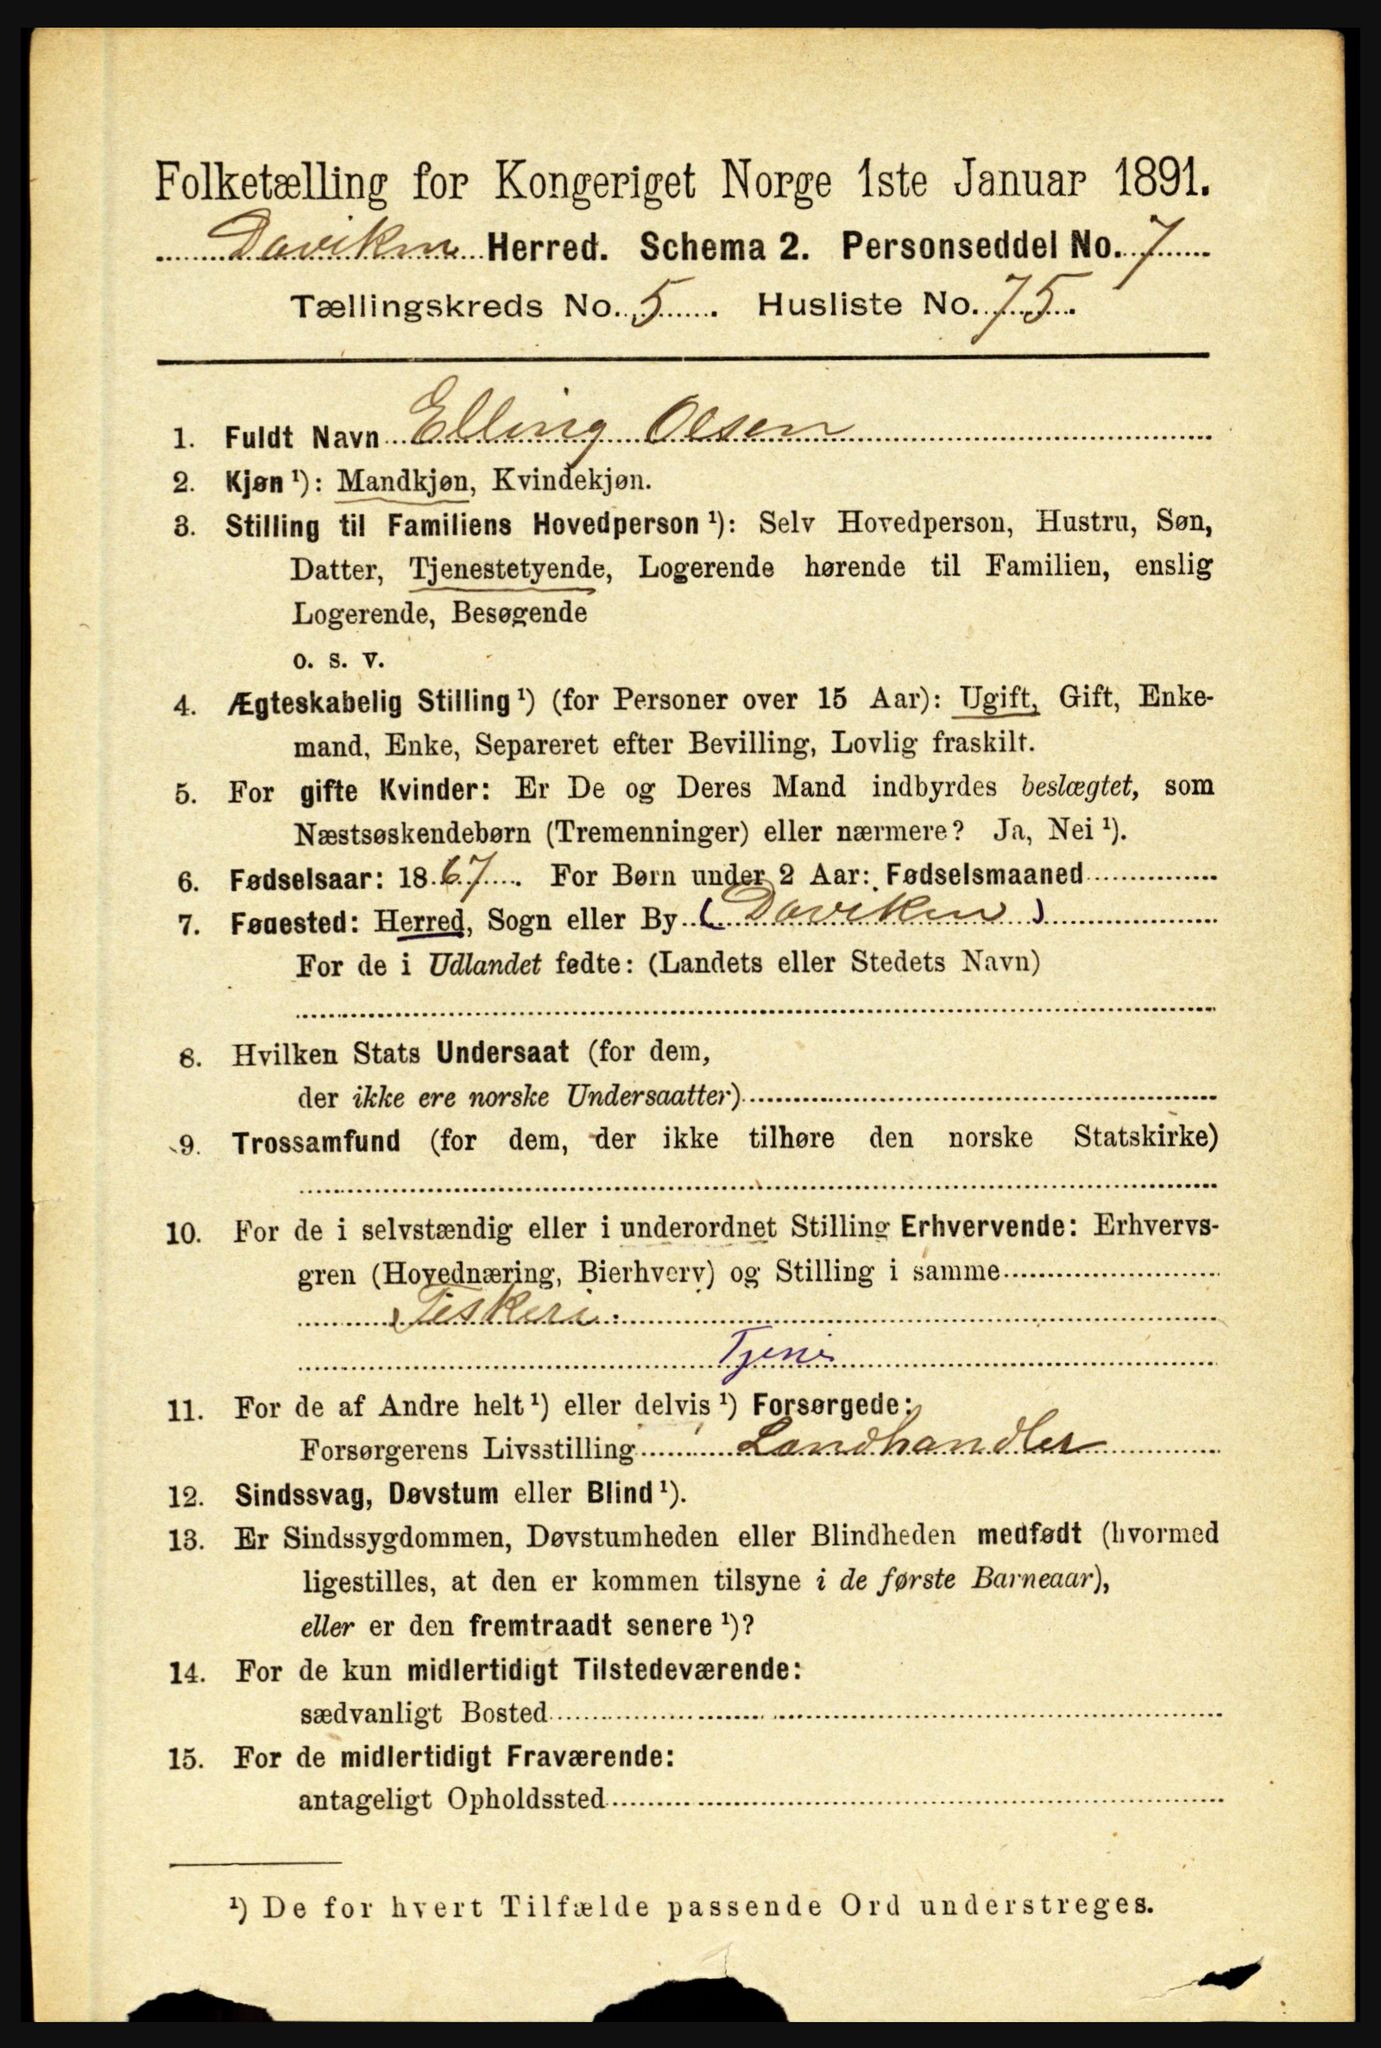 Folketælling for Kongeriget Norge 1ste Januar 1891.
Daviken Herred. Schema 2. Personseddel No. 7
Tællingskreds No. 5. Husliste No. 75.
1. Fuldt Navn Elling Olsen
2. Kjøn ¹): Mandkjøn, Kvindekjøn.
3. Stilling til Familiens Hovedperson ¹): Selv Hovedperson, Hustru, Søn,
Datter, Tjenestetyende, Logerende hørende til Familien, enslig
Logerende, Besøgende
o. s. v.
4. Ægteskabelig Stilling ¹) (for Personer over 15 Aar): Ugift, Gift, Enke-
mand, Enke, Separeret efter Bevilling, Lovlig fraskilt.
5. For gifte Kvinder: Er De og Deres Mand indbyrdes beslægtet, som
Næstsøskendebørn (Tremenninger) eller nærmere? Ja, Nei ¹).
6. Fødselsaar: 1867. For Børn under 2 Aar: Fødselsmaaned
7. Føuested: Herred, Sogn eller By (Daviken)
For de i Udlandet fødte: (Landets eller Stedets Navn)
8. Hvilken Stats Undersaat (for dem,
der ikke ere norske Undersaatter)
9. Trossamfund (for dem, der ikke tilhøre den norske Statskirke)
10. For de i selvstændig eller i underordnet Stilling Erhvervende: Erhvervs-
gren (Hovednæring, Bierhverv) og Stilling i samme
Fiskeri.
Tjene
11. For de af Andre helt ¹) eller delvis ¹) Forsørgede:
Forsørgerens Livsstilling Landhandler
12. Sindssvag, Døvstum eller Blind ¹).
13. Er Sindssygdommen, Døvstumheden eller Blindheden medfødt (hvormed
ligestilles, at den er kommen tilsyne i de første Barneaar),
eller er den fremtraadt senere ¹)?
14. For de kun midlertidigt Tilstedeværende:
sædvanligt Bosted
15. For de midlertidigt Fraværende:
antageligt Opholdssted
¹) De for hvert Tilfælde passende Ord understreges.